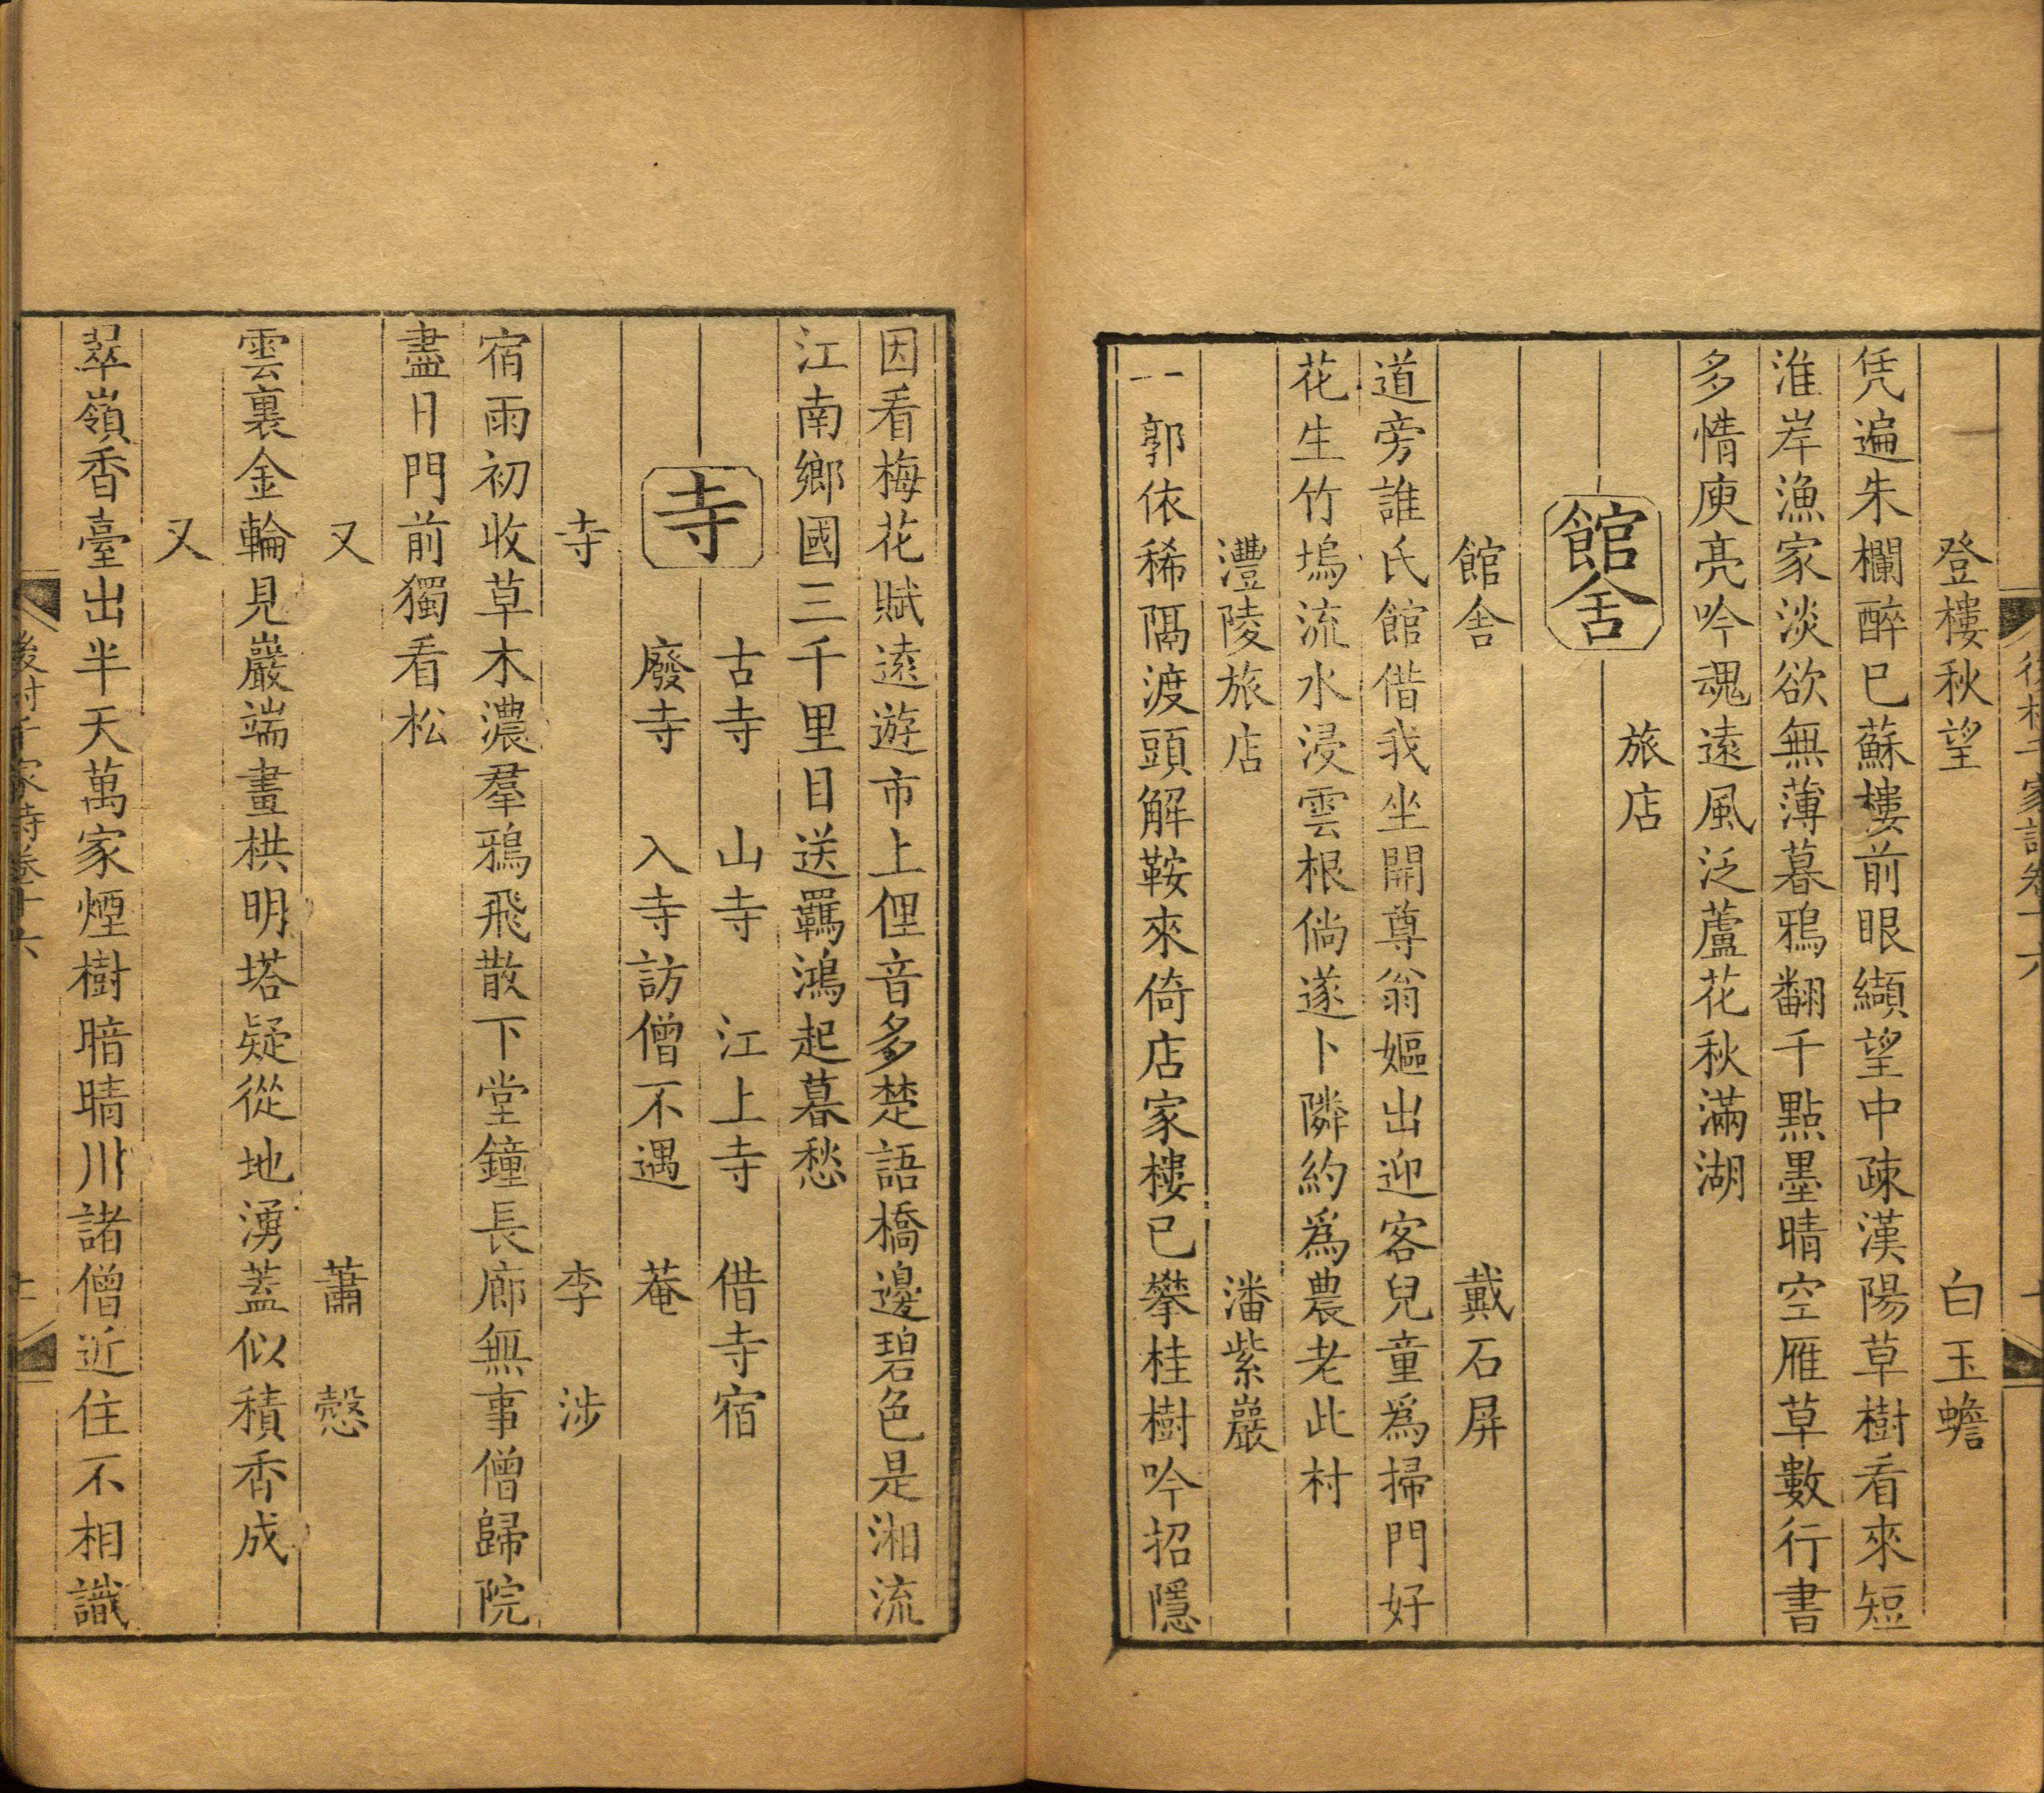 登樓秋望　白玉蟾
凭遍朱欄醉巳蘇樓前眼纈望中疎漢陽草樹看來短
淮岸漁家淡欲無薄暮鴉翻千點墨晴空雁草數行書
多情庾亮吟魂遠風泛蘆花秋滿湖
旅店
館舍
館舍　戴石屏
道旁誰氏館借我坐開尊翁嫗出迎客兒童爲掃門好
花生竹塢流水浸雲根倘遂卜隣約爲農老此村
灃陵旅店　潘紫巖
一郭依稀隔渡頭解鞍來倚店家樓已攀桂樹吟招隱
因看梅花賦遠遊市上俚音多楚語橋邊碧色是湘流
江南鄉國三千里目送羈鴻起暮愁
古寺　山寺　江上寺　借寺宿
寺
廢寺　入寺訪僧不遇　菴
寺　李涉
宿雨初收草木濃羣鴉飛散下堂鐘長廊無事僧歸院
盡日門前獨看松
又　蕭愨
雲裏金輪見巖端畫栱明塔疑從地湧蓋似積香成
又
翠嶺香臺出半天萬家煙樹暗晴川諸僧近住不相識
後村千家詩卷十六